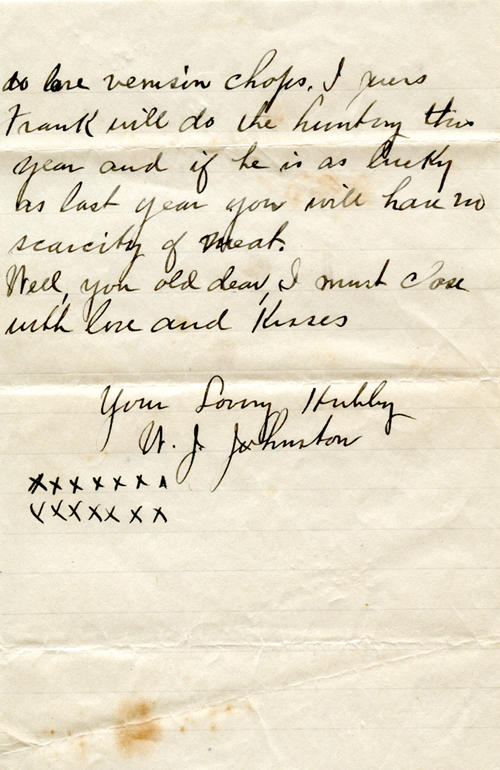 do love venisin chops. I
Frank will do the hunting this
year and if he is as lucky
as last year you will have no
scarcity of meat.
Well, you old dear, I must close
with love and Kisses
Your Loving Hubby
W. J. Johnston
xxxxxxx
xxxxxxx